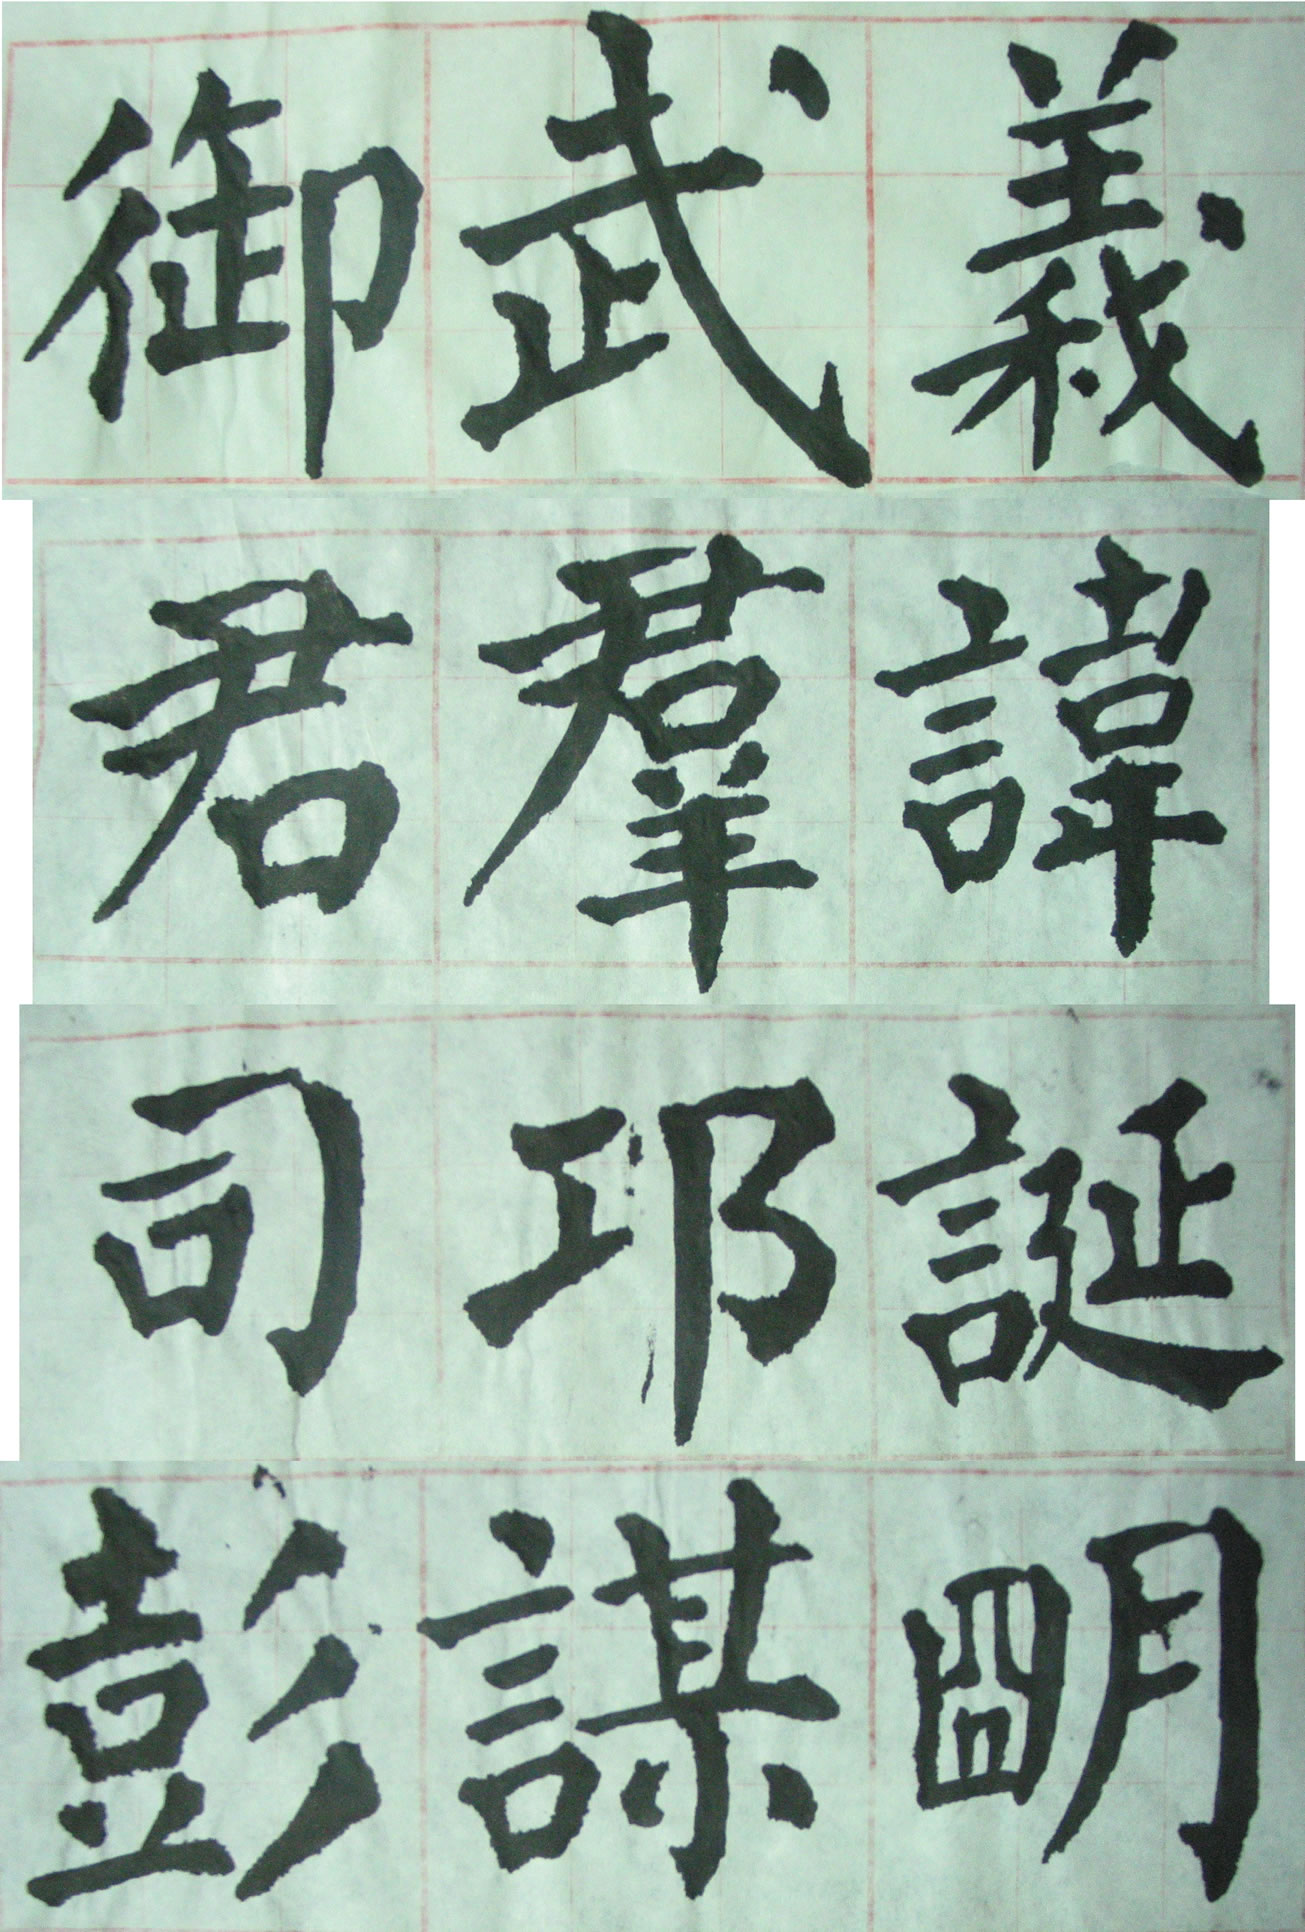 御武義
君羣諱
司邛誕
彭謀朙